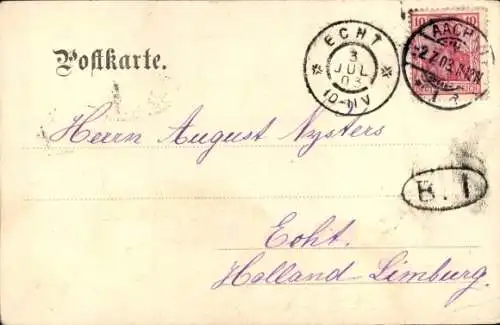 Postkarte.
ECHT
3
JUL
03
10-11V
10 10
AACHEN
2 7 03
Herrn August Nysters
B. 1
Echt.
Holland Limburg.